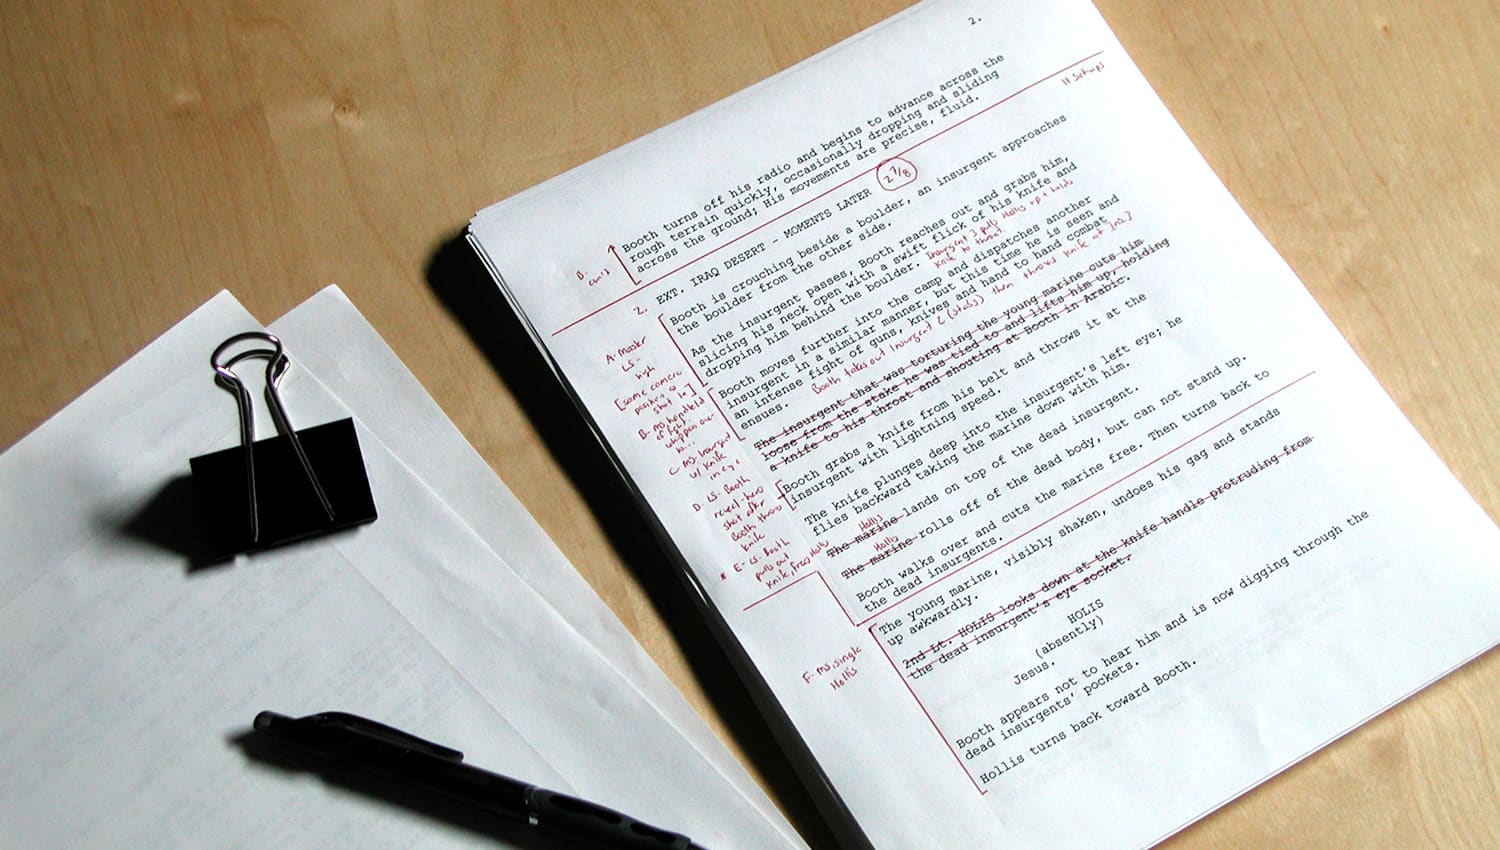 2.
11 Setups
Booth turns off his radio and begins to advance across the
rough terrain quickly, occasionally dropping and sliding
across the ground; His movements are precise, fluid.
B- con't
2. EXT. IRAQ DESERT - MOMENTS LATER 2 7/8
Booth is crouching beside a boulder, an insurgent approaches
the boulder from the other side.
As the insurgent passes, Booth reaches out and grabs him,
slicing his neck open with a swift flick of his knife and
dropping him behind the boulder. Insurgent 3 pulls Hollis up + holds
knife to throat.
Booth moves further into the camp and dispatches another
insurgent in a similar manner, but this time he is seen and
an intense fight of guns, knives and hand to hand combat
ensues. Booth takes out Insurgent 2 (stabs) then throws knife at In3.]
The insurgent that was torturing the young marine cuts him
loose from the stake he was tied to and lifts him up, holding
a knife to his throat and shouting at Booth in Arabic.
Booth grabs a knife from his belt and throws it at the
insurgent with lightning speed.
The knife plunges deep into the insurgent's left eye; he
flies backward taking the marine down with him.
Hollis
The marine lands on top of the dead insurgent.
Hollis
The marine rolls off of the dead body, but can not stand up.
Booth walks over and cuts the marine free. Then turns back to
the dead insurgents.
The young marine, visibly shaken, undoes his gag and stands
up awkwardly.
2nd Lt. HOLIS looks down at the knife handle protruding from
the dead insurgent's eye socket.
HOLIS
(absently)
Jesus.
Booth appears not to hear him and is now digging through the
dead insurgents' pockets.
Hollis turns back toward Booth.
A- Master
LS-
high
[same camera
position as
shot 1c]
B- MS handheld
of fight
C- MS Insurgent
w/ knife
in eye
D- LS- Booth
reveal-hero
shot after
Booth throws
knife
* E- LS- Booth
pulls out
knife, frees Hollis
F- MS, single
Hollis